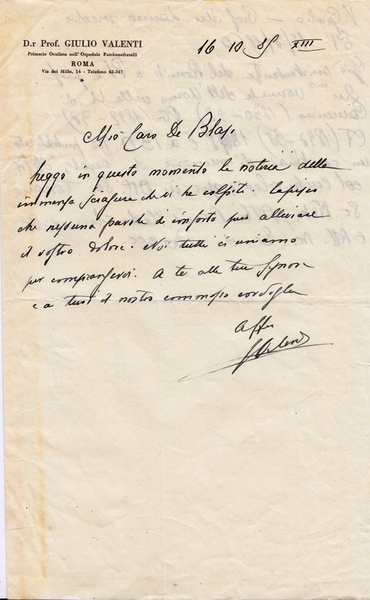 D.r Prof. GIULIO VALENTI
Primario Oculista nell'Ospedale Fatebenefratelli
ROMA
Via dei Mille, 14 - Telefono 42-347
16 10 35 XIII
Mio Caro De Blasi
leggo in questo momento la notizia della
immensa sciagura che vi ha colpiti. Capisco
che nessuna parola di conforto può alleviare
il vostro dolore. Noi tutti ci uniamo
per compiangervi. A te alla tua Signora
e a tutti il nostro commosso cordoglio
Aff.mo
GValenti